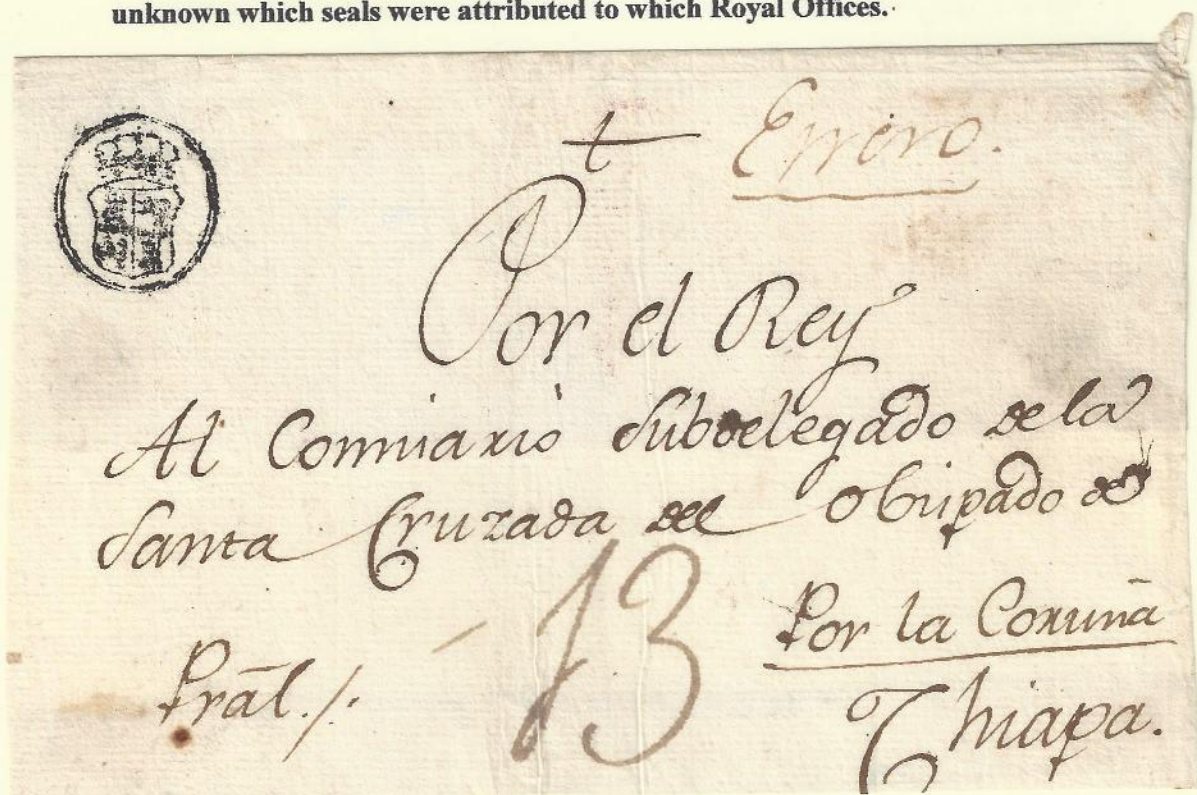 unknown which seals were attributed to which Royal Offices.
Enero.
Por el Rey
Al Comisario Subdelegado de la
Santa Cruzada del Obispado de
Por la Coruña
Pral./.
13
Chiapa.